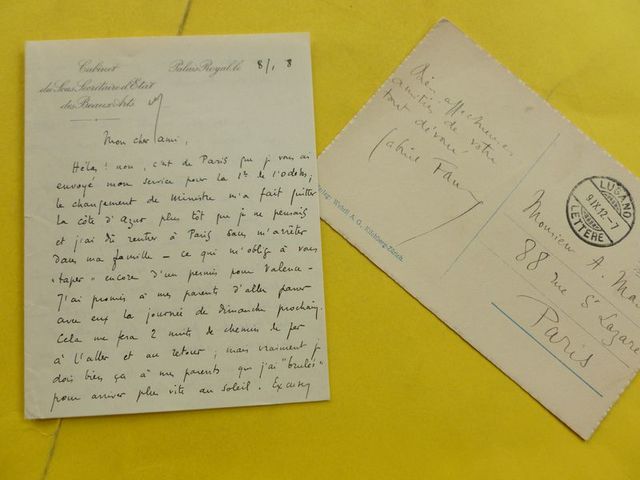 Cabinet
du Sous Secrétaire d'Etat
des Beaux-Arts
Palais Royal, le 8/1 8
Mon cher ami,
Hélas! non, c'est de Paris que je vous ai
envoyé mon service pour la 1re de l'odéon;
le changement de Ministre m'a fait quitter
la côte d'azur plus tôt que je ne pensais
et j'ai dû rentrer à Paris sans m'arrêter
dans ma famille - ce qui m'oblige à vous
"taper" encore d'un permis pour Valence -
J'ai promis à mes parents d'aller passer
avec eux la journée de dimanche prochain.
Cela me fera 2 nuits de chemin de fer
à l'aller et au retour; mais vraiment je
dois bien ça à mes parents que j'ai "brulés"
pour arriver plus vite au soleil. Excusez
Très affectueuses
amitiés de votre
tout dévoué
Gabriel Faur
Wehrli A. G., Kilchberg-Zürich
LUGANO
9.IX.12.-7
LETTERE
Monsieur A. Ma
88 rue St Lazare
Paris